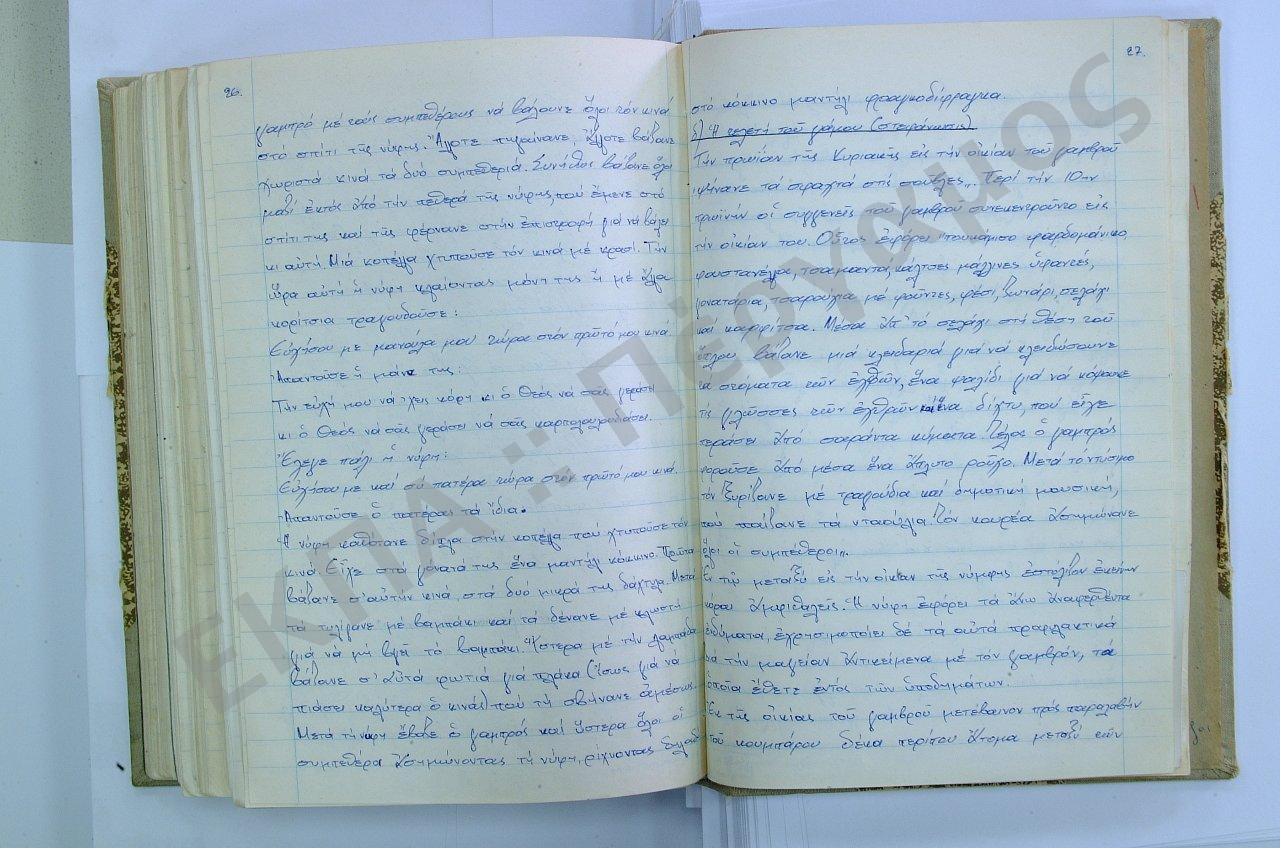 26.
γαμπρό μέ τούς συμπεθέρους νά βάλουνε ὅλοι τόν κινά
στό σπίτι τῆς νύφης. Ἄλλοτε πηγαίνανε, ἄλλοτε βάζανε
χωριστά κινά τά δυό συμπεθεριά. Συνήθως βάζανε ὅλοι
μαζί ἐκτός ἀπό τήν πεθερά τῆς νύφης, πού ἔμενε στό
σπίτι της καί τῆς φέρνανε στήν ἐπιστροφή γιά νά βάλει
κι αὐτή. Μιά κοπέλλα χτυποῦσε τόν κινά μέ κρασί. Τήν
ὥρα αὐτή ἡ νύφη κλαίοντας μόνη της ἤ μέ ἄλλα
κορίτσια τραγουδοῦσε:
Εὐχήσου με μανούλα μου τώρα στόν πρῶτό μου κινά
Ἀπαντοῦσε ἡ μάνα της:
Τήν εὐχή μου νά 'χεις κόρη κι ὁ Θεός νά σᾶς γεράσει
κι ὁ Θεός νά σᾶς γεράσει νά σᾶς
Ἔλεγε πάλι ἡ νύφη:
Εὐχήσου με καί σύ πατέρα τώρα στόν πρῶτό μου κινά.
Ἀπαντοῦσε ὁ πατέρας τά ἴδια.
Ἡ νύφη καθότανε δίπλα στήν κοπέλα πού χτυποῦσε τόν
κινά. Εἶχε στά γόνατά της ἕνα μαντήλι κόκκινο. Πρῶτα
βάζανε σ' αὐτήν κινά, στά δυό μικρά της δάχτυλα. Μετά
τά τυλίγανε μέ βαμπάκι καί τά δένανε μέ κλωστή
γιά νά μή βγεῖ τό βαμπάκι. Ὕστερα μέ τήν λαμπάδα
βάζανε σ' αὐτά φωτιά γιά πλάκα (ἴσως γιά νά
πιάσει καλύτερα ὁ κινάς) πού τή σβήνανε ἀμέσως.
Μετά τή νύφη ἔβαζε ὁ γαμπρός καί ὕστερα ὅλοι οἱ
συμπεθέροι ἀσημώνοντας τή νύφη, ρίχνοντας δηλαδή
27.
στό κόκκινο μαντήλι φραγκοδίφραγκα.
δ) Ἡ τελετή τοῦ γάμου (στεφάνωσις)
Τήν πρωΐαν τῆς Κυριακῆς εἰς τήν οἰκίαν τοῦ γαμβροῦ
ψήνανε τά σφαχτά στίς σοῦβλες". Περί τήν 10ην
πρωϊνήν οἱ συγγενεῖς τοῦ γαμβροῦ συνεκεντροῦντο εἰς
τήν οἰκίαν του. Οὗτος ἐφόρει "πουκάμισο φαρδομάνικο,
φουστανέλα, τσαμαντά, κάλτσες μάλλινες ὑφαντές,
γονατάρια, τσαρούχια μέ φοῦντες, φέσι, ζωνάρι, σελάχι
καί καρφίτσα. Μέσα ἀπ' τό σελάχι στή θέση τοῦ
ὅπλου βάζανε μιά κλειδαριά γιά νά κλειδώσουνε
τά στόματα τῶν ἐχθρῶν, ἕνα ψαλίδι γιά νά κόψουνε
τίς γλῶσσες τῶν ἐχθρῶν καί ἕνα δίχτυ, πού εἶχε
περάσει ἀπό σαράντα κύματα. Τέλος ὁ γαμπρός
φοροῦσε ἀπό μέσα ἕνα ἄπλυτο ροῦχο. Μετά τό ντύσιμο
τόν ξυρίζανε μέ τραγούδια καί δημοτική μουσική,
πού παίζανε τά νταούλια. Τόν κουρέα ἀσημώνανε
ὅλοι οἱ συμπέθεροι".
Ἐν τῷ μεταξύ εἰς τήν οἰκίαν τῆς νύμφης ἐστόλιζον ἐκείνην
κόραι ἀμφιθαλεῖς. Ἡ νύφη ἐφόρει τά ἄνω ἀναφερθέντα
ἐνδύματα, ἐχρησιμοποίει δέ τά αὐτά προφυλακτικά
διά τήν μαγείαν ἀντικείμενα μέ τόν γαμβρόν, τά
ὁποῖα ἔθετε ἐντός τῶν ὑποδημάτων.
Ἐκ τῆς οἰκίας τοῦ γαμβροῦ μετέβαινον πρός παραλαβήν
τοῦ κουμπάρου δέκα περίπου ἄτομα μεταξύ τῶν
ΕΚΠΑ :: Πέργαμος